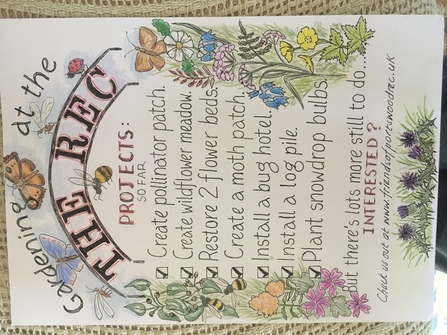 Gardening at the
THE REC
PROJECTS:
SO FAR
Create pollinator patch.
Create wildflower meadow.
Restore 2 flower beds.
Create a moth patch.
Install a bug hotel.
Install a log pile.
Plant snowdrop bulbs.
But there's lots more still to do....
INTERESTED?
Check us out at www.friendsofporeswoodrec.uk